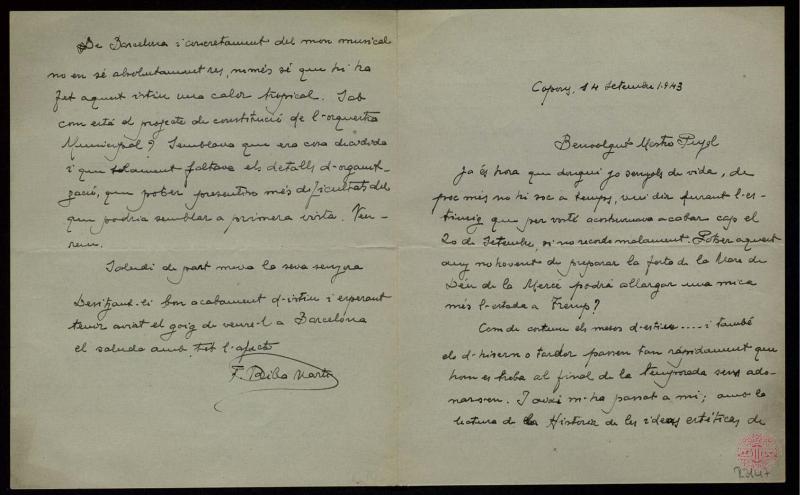 Capçons, 14 Setembre 1943
Benvolgut Mestre Pujol
Ja és hora que dongui jo senyals de vida, de
poc més no hi soc a temps, vui dir durant l'es-
tiueig que per vosté acostumava acabar cap el
20 de Setembre, si no recordo malament. Potser aquest
any no havent de preparar la festa de la Mare de
Déu de la Mercè podrá allargar una mica
més l'estada a Tremp?
Com de costum els mesos d'estiu.... i també
els d'hivern o tardor passen tan rápidament que
hom es troba al final de la temporada sens ado-
narsen. I aixi m'ha passat a mi; amb la
lectura de la Historia de les ideas estéticas de
De Barcelona i concretament del mon musical
no en sé absolutament res, només sé que hi ha
fet aquest istiu una calor tropical. Sab
com está el projecte de constitució de l'orquestra
Municipal? Semblava que era cosa decidida
i que solament faltava els detalls d'organit-
zació, que potser presentin més dificultats del
que podria semblar a primera vista. Veu-
rem.
Saludi de part meva la seva senyora
Desitjant-li bon acabament d'istiu i esperant
tenir aviat el goig de veure-l a Barcelona
el saluda amb tot l'afecte
F. Ribó Martí